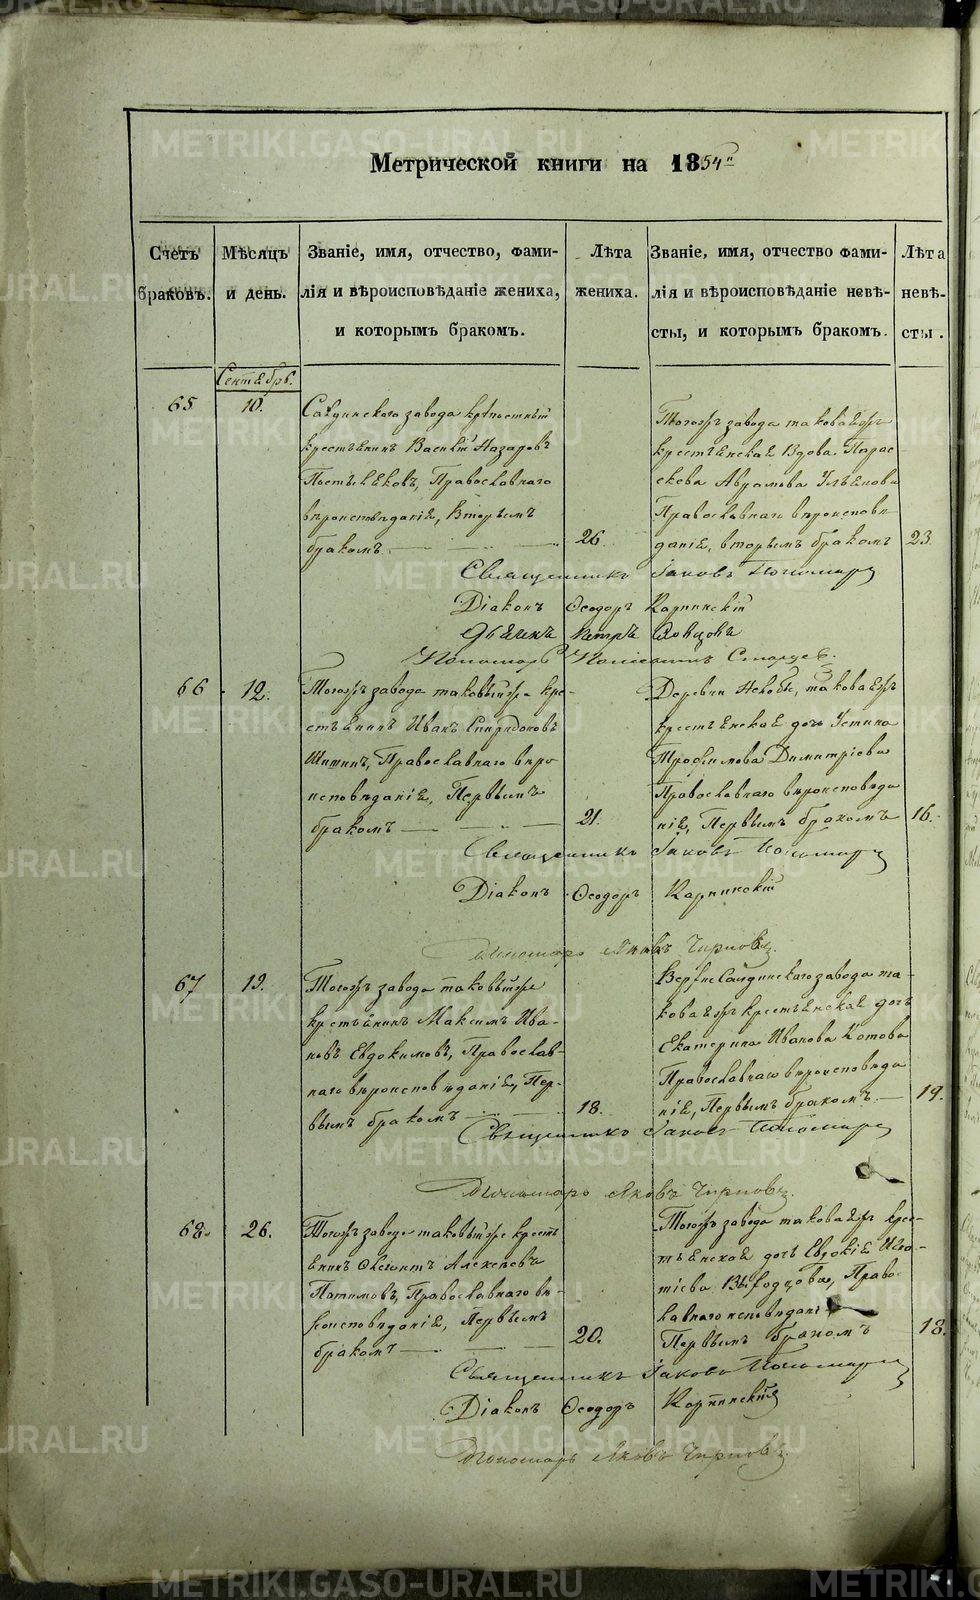 METRIKI.GASO-URAL.RU
Метрической книги на 1854й
Счетъ браковъ.
Мѣсяцъ и день.
Званіе, имя, отчество, фами-
лія и вѣроисповѣданіе жениха,
и которымъ бракомъ.
Лѣта жениха.
Званіе, имя, отчество фами-
лія и вѣроисповѣданіе невѣ-
сты, и которымъ бракомъ.
Лѣта невѣ-
сты.
Сентябрь.
65
10.
Салдинскаго завода крѣпостный
крестьянинъ Василій Назаровъ
Православнаго
вѣроисповѣданія, Вторымъ
бракомъ
26.
Тогожъ завода таковаяжъ
крестьянская Вдова Парас-
кева Аврамова
Православнаго вѣроисповѣ
данія, вторымъ бракомъ
23.
Священникъ Іаковъ Пономаре
Діаконъ Ѳеодоръ Карпинскій
Дьячекъ Петръ Словцовъ
Пономарь
66
12.
Тогожъ завода таковыйже кре-
стьянинъ Иванъ Спиридоновъ
Шитинъ, Православнаго вѣро
исповѣданія, Первымъ
бракомъ
21.
Деревни Невой, таковаяжъ
крестьянская дочь Устина
Трофимова Димитріева
Православнаго вѣроисповѣда
нія, Первымъ бракомъ
16.
Священникъ Іаковъ Пономаре
Діаконъ Ѳеодоръ Карпинскій
Пономарь Яковъ Чирковъ.
67
19.
Тогожъ завода таковыйже
крестьянинъ Максимъ Ива-
новъ Евдокимовъ, Православ-
наго вѣроисповѣданія, Пер-
вымъ бракомъ
18.
Верхнесалдинскаго завода та-
коваяжъ крестьянская дочь
Екатерина Иванова Котова
Православнаго вѣроисповѣда
нія, Первымъ бракомъ
19.
Священникъ Іаковъ Пономаре
Пономарь Яковъ Чирковъ.
68.
26.
Тогожъ завода таковыйже кресть
янинъ Алексѣевъ
Православнаго вѣ-
роисповѣданія, Первымъ
бракомъ
20.
Тогожъ завода таковаяжъ крес-
тьянская дочь Евдокія Игна-
тіева Православ-
лавнаго исповѣдані
Первымъ бракомъ
18.
Священникъ Іаковъ Пономаре
Діаконъ Ѳеодоръ Карпинскій
Пономарь Яковъ Чирковъ.